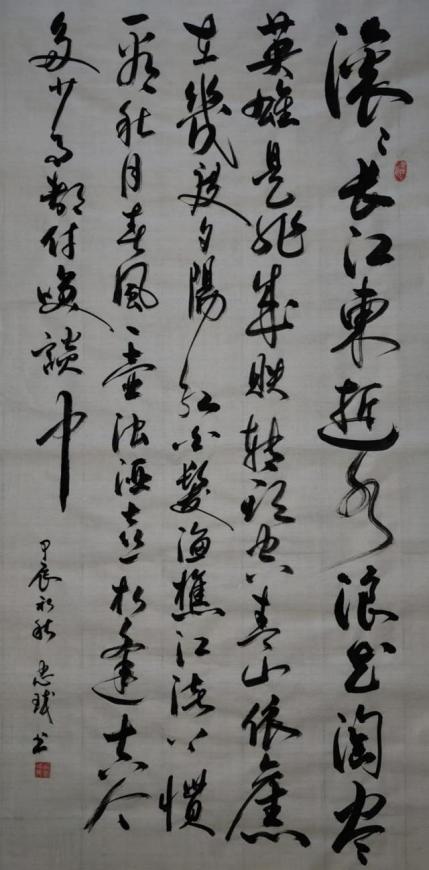 滚〻长江東逝水浪花淘尽
英雄是非成敗转头空青山依舊
在幾度夕陽红白髮渔樵江渚上惯
看秋月春風一壶浊酒喜相逢古今
多少事都付笑談中
甲辰初秋 书